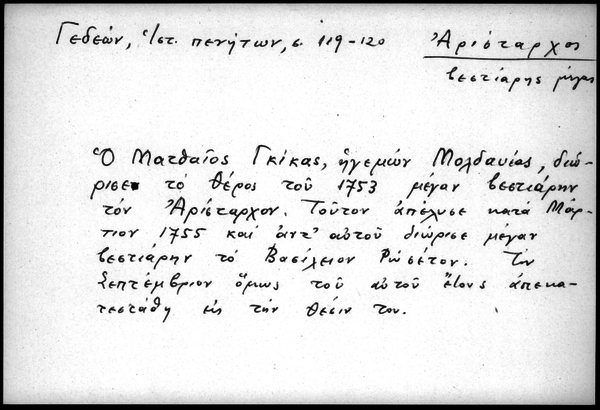 Γεδεών, Ἱστ. πενήτων, σ. 119-120
Ἀρίσταρχος
βεστιάρης μέγας
Ὁ Ματθαῖος Γκίκας, ἡγεμών Μολδαυίας, διώ-
ρισε τό θέρος τοῦ 1753 μέγαν βεστιάρην
τόν Ἀρίσταρχον. Τοῦτον ἀπέλυσε κατά Μάρ-
τιον 1755 καί ἀντ' αὐτοῦ διώρισε μέγαν
βεστιάρην τό Βασίλειον Ρωσέτον. Τόν
Σεπτέμβριον ὅμως τοῦ αὐτοῦ ἔτους ἀπεκα-
τεστάθη εἰς τήν θέσιν του.